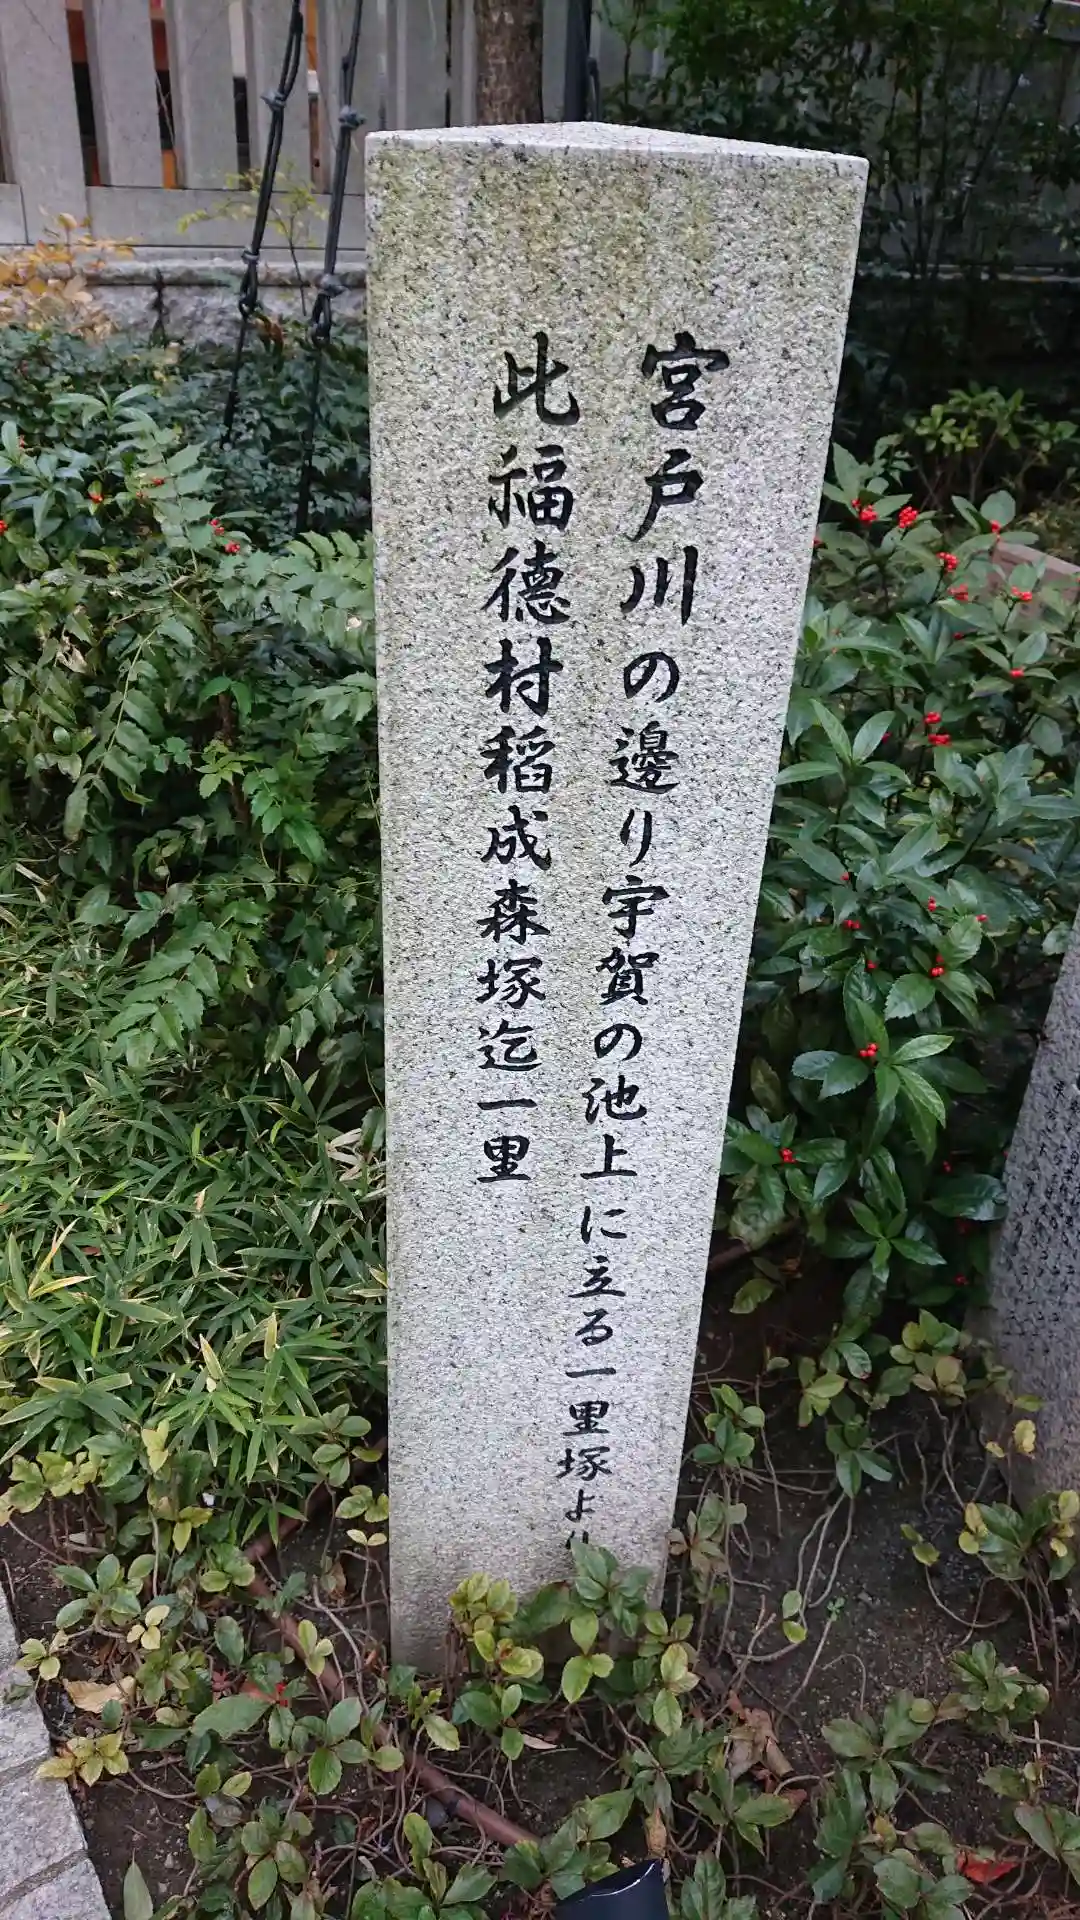 宮戸川の邊り宇賀の池上に立る一里塚より
此福徳村稻成森塚迄一里